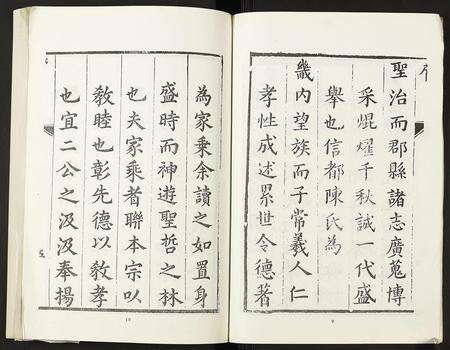 聖治而郡縣諸志廣蒐博
采焜燿千秋誠一代盛
舉也信都陳氏為
畿內望族而子常羲人仁
孝性成述累世令德著
為家乘余讀之如置身
盛時而神遊聖哲之林
也夫家乘者聯本宗以
敎睦也彰先德以敎孝
也宜二公之汲汲奉揚